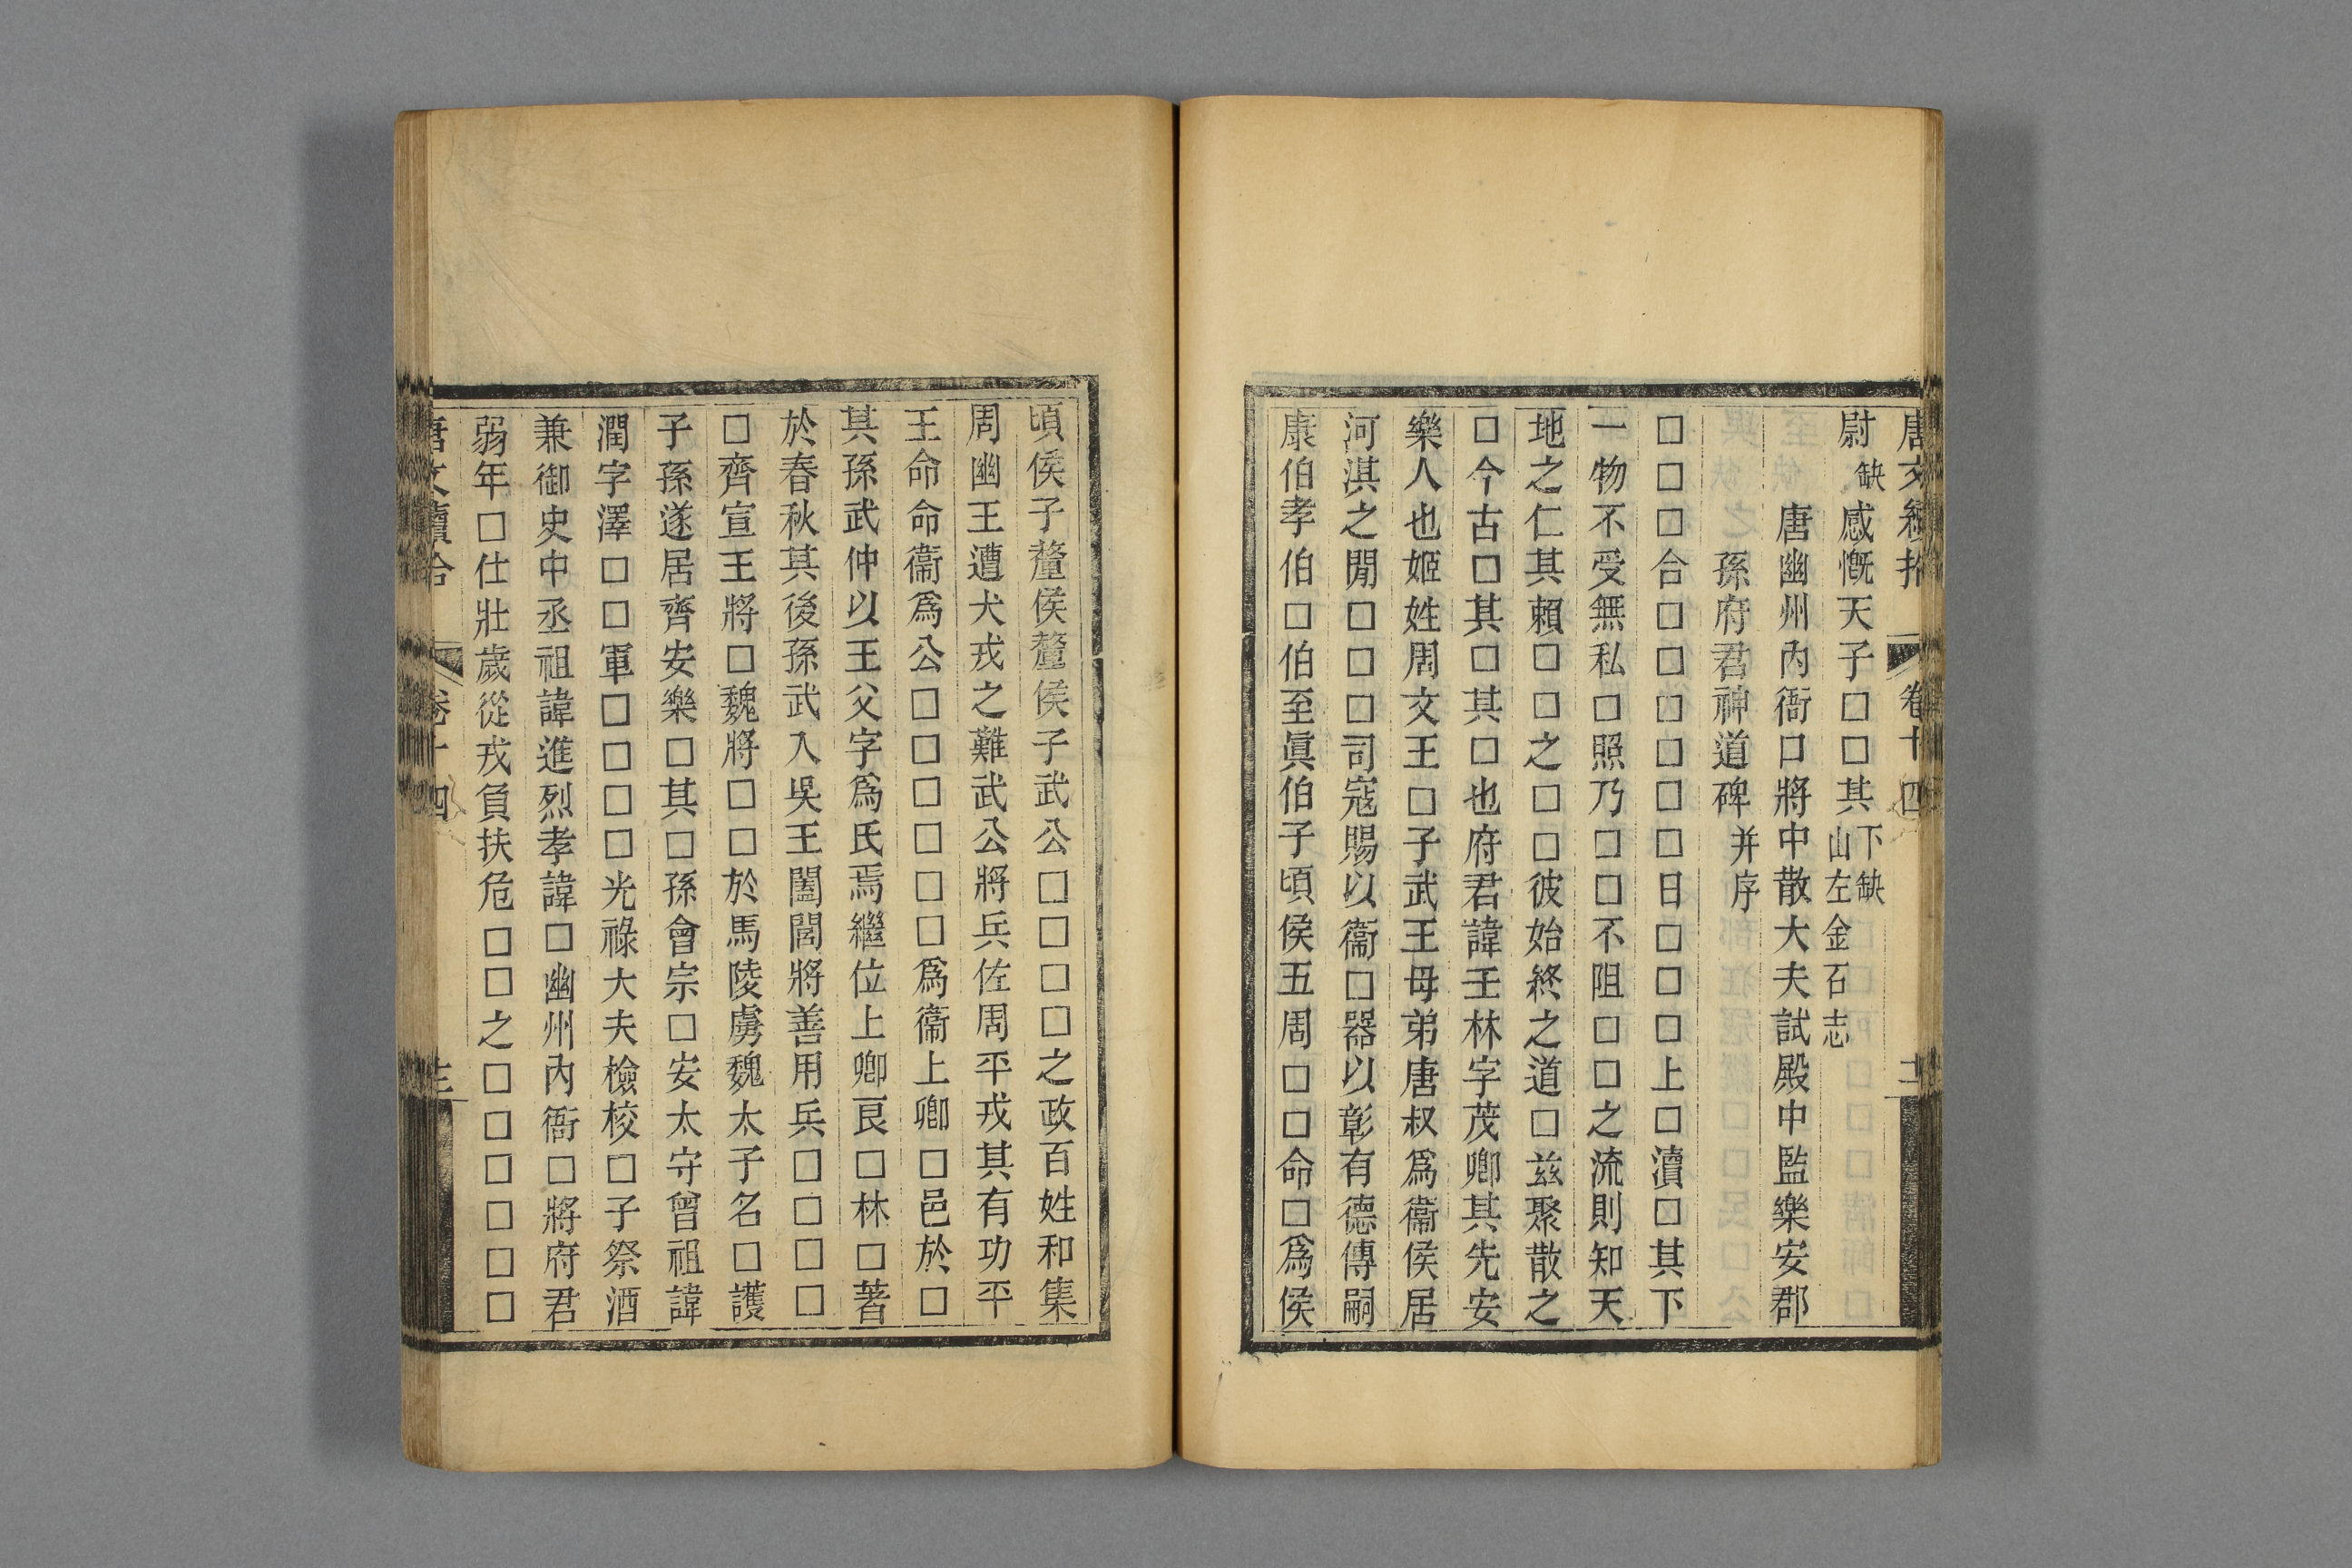 唐文續拾 卷十四 十二
尉缺感慨天子□□其下缺山左金石志
唐幽州內衙□將中散大夫試殿中監樂安郡
孫府君神道碑并序
□□□合□□□□□□日□□□上□瀆□其下
一物不受無私□照乃□□不阻□□之流則知天
地之仁其賴□□之□□彼始終之道□茲聚散之
□今古□其□其□也府君諱壬林字茂卿其先安
樂人也姬姓周文王□子武王母弟唐叔爲衞侯居
河淇之閒□□□司寇賜以衞□器以彰有德傳嗣
康伯孝伯□伯至眞伯子頃侯五周□□命□爲侯
頃侯子釐侯釐侯子武公□□□□之政百姓和集
周幽王遭犬戎之難武公將兵佐周平戎其有功平
王命命衞爲公□□□□□□爲衞上卿□邑於□
其孫武仲以王父字爲氏焉繼位上卿良□林□著
於春秋其後孫武入吳王闔閭將善用兵□□□□
□齊宣王將□魏將□□於馬陵虜魏太子名□護
子孫遂居齊安樂□其□孫會宗□安太守曾祖諱
潤字澤□□軍□□□□光祿大夫檢校□子祭酒
兼御史中丞祖諱進烈孝諱□幽州內衙□將府君
弱年□仕壯歲從戎負扶危□□之□□□□□□
唐文續拾 卷十四 十三